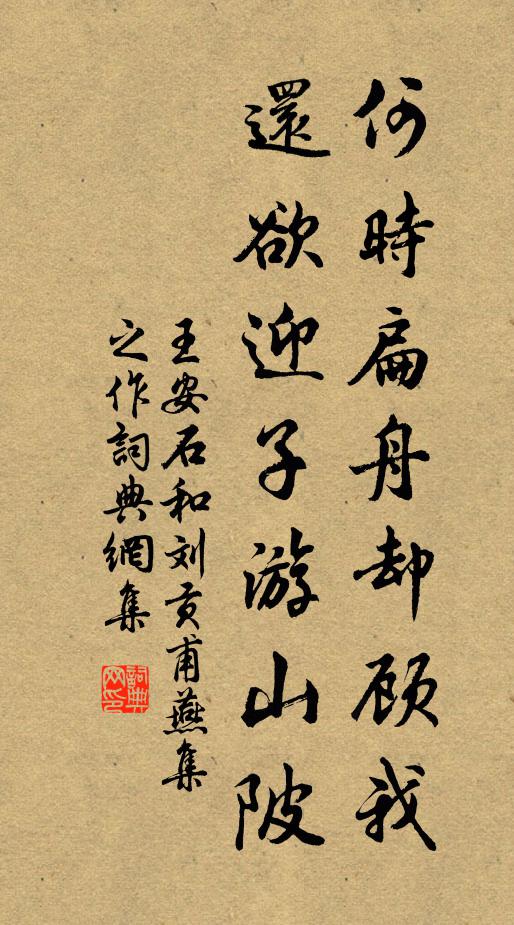 何時扁舟却顾我
還欲迎子游山陂
王安石和刘贡甫燕集
之作詞典網集
詞典
网印